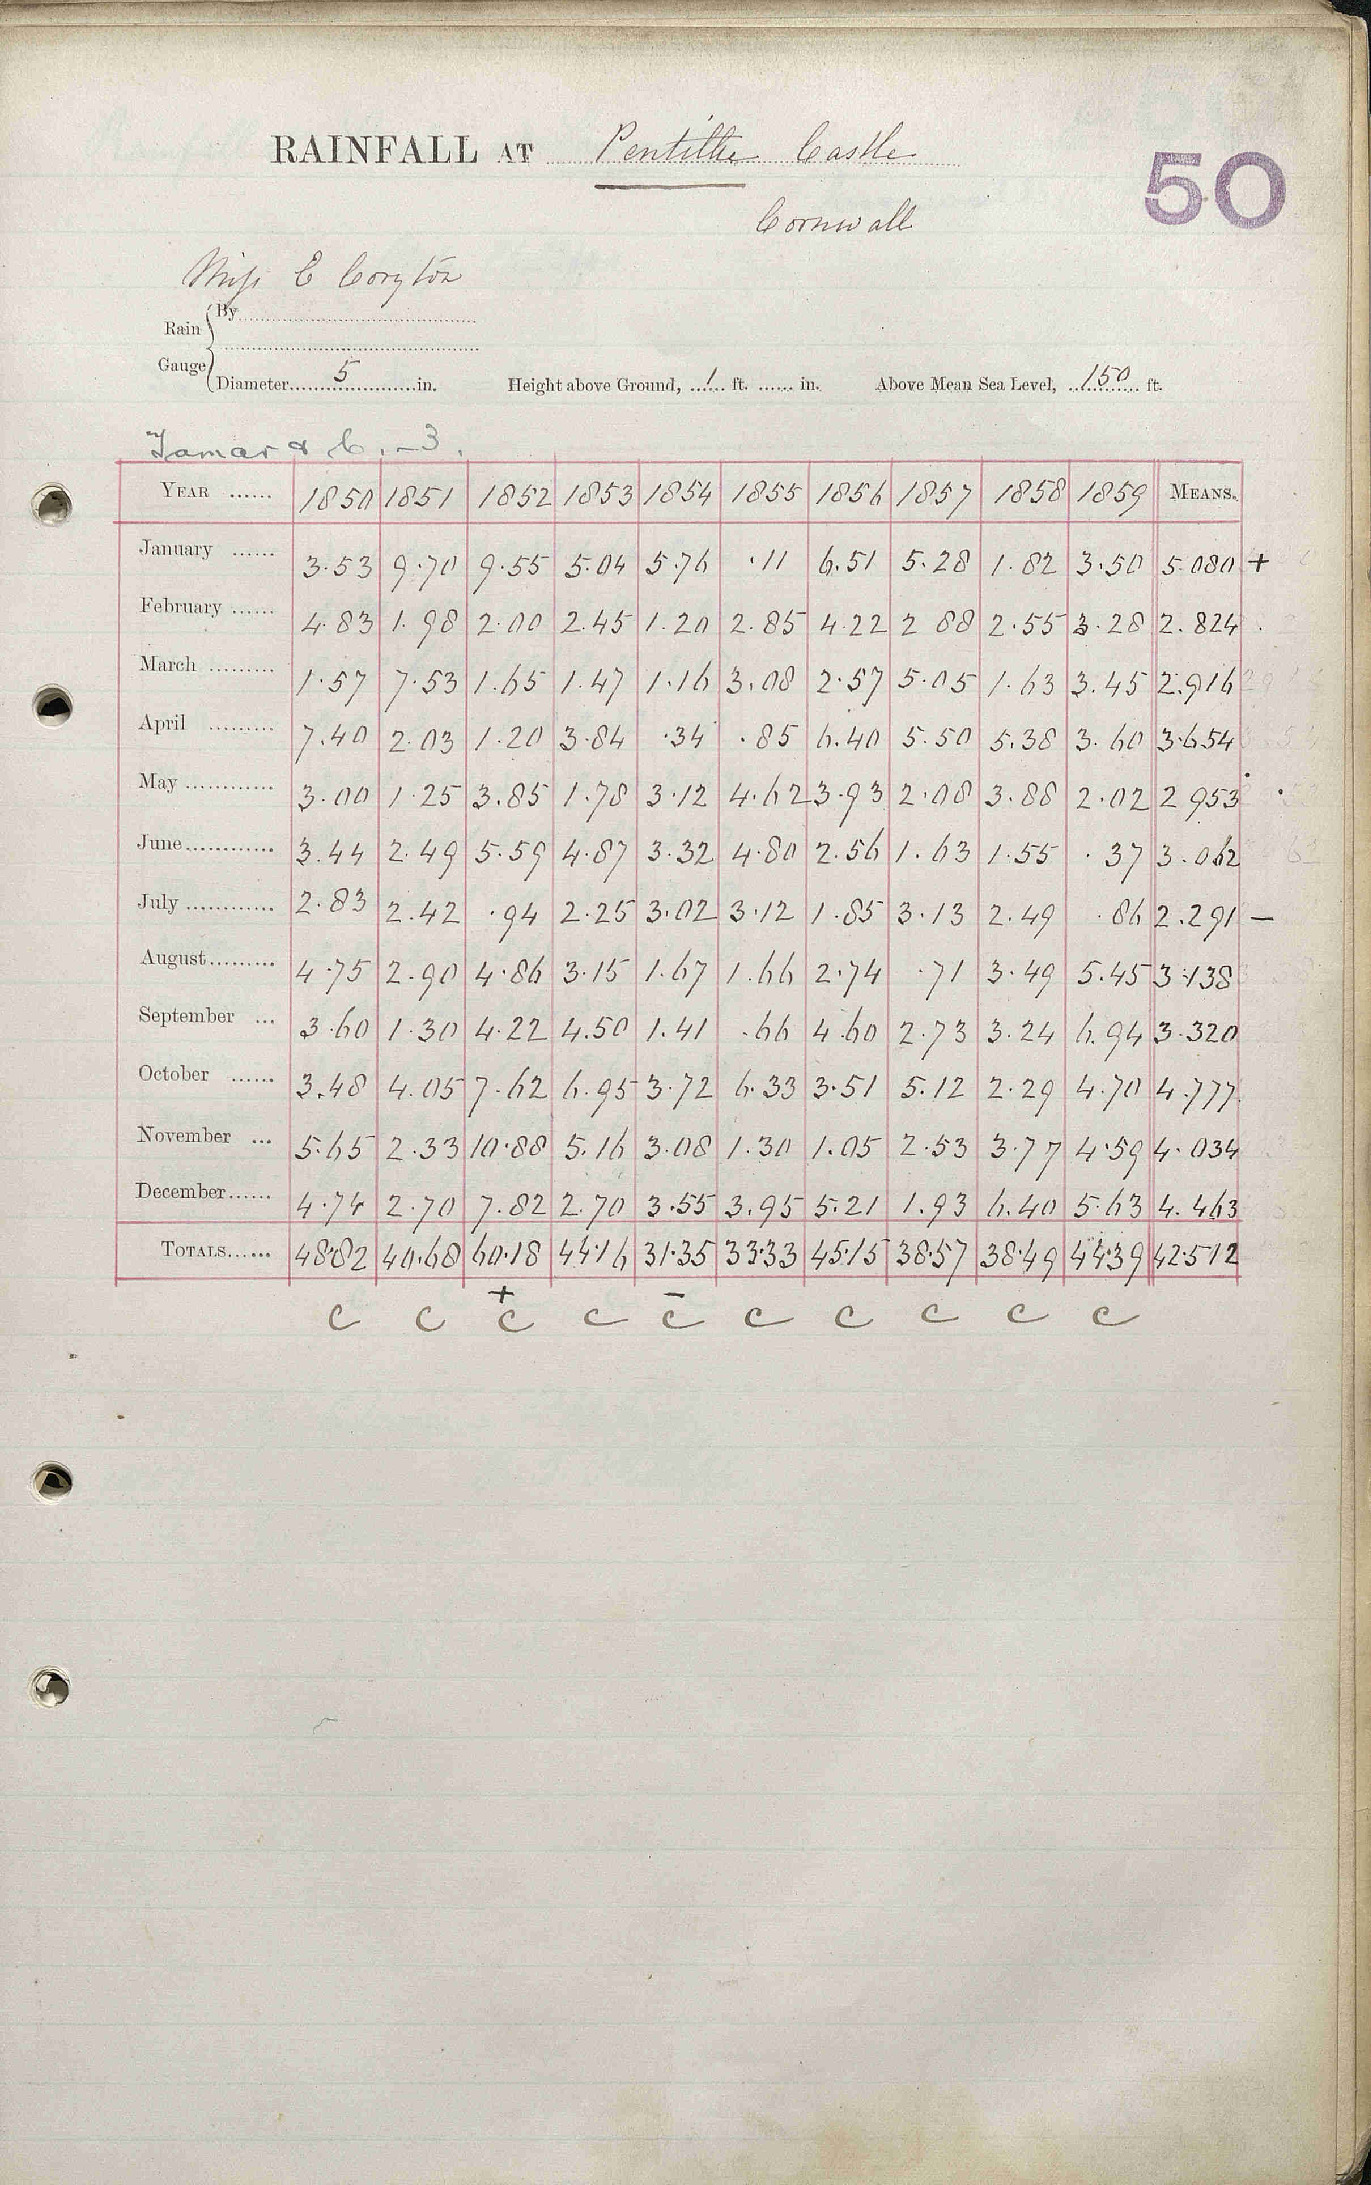 RAINFALL AT Pentillie Castle
50
Cornwall
Miss E Coryton
Rain Gauge
By
Diameter 5 in. Height above Ground, 1 ft. in. Above Mean Sea Level, 150 ft.
Tamar & C. - 3.
YEAR 1850 1851 1852 1853 1854 1855 1856 1857 1858 1859 MEANS.
January 3.53 9.70 9.55 5.04 5.76 .11 6.51 5.28 1.82 3.50 5.080 +
February 4.83 1.98 2.00 2.45 1.20 2.85 4.22 2 88 2.55 3.28 2.824
March 1.57 7.53 1.65 1.47 1.16 3.08 2.57 5.05 1.63 3.45 2.916
April 7.40 2.03 1.20 3.84 .34 .85 6.40 5.50 5.38 3.60 3.654
May 3.00 1.25 3.85 1.78 3.12 4.62 3.93 2.08 3.88 2.02 2 953
June 3.44 2.49 5.59 4.87 3.32 4.80 2.56 1.63 1.55 .37 3.062
July 2.83 2.42 .94 2.25 3.02 3.12 1.85 3.13 2.49 .86 2.291 —
August 4.75 2.90 4.86 3.15 1.67 1.66 2.74 .71 3.49 5.45 3.138
September 3.60 1.30 4.22 4.50 1.41 .66 4.60 2.73 3.24 6.94 3.320
October 3.48 4.05 7.62 6.95 3.72 6.33 3.51 5.12 2.29 4.70 4.777
November 5.65 2.33 10.88 5.16 3.08 1.30 1.05 2.53 3.77 4.59 4.034
December 4.74 2.70 7.82 2.70 3.55 3.95 5.21 1.93 6.40 5.63 4.463
TOTALS 48.82 40.68 60.18 44.16 31.35 33.33 45.15 38.57 38.49 44.39 42.512
+ -
C C C C C C C C C C